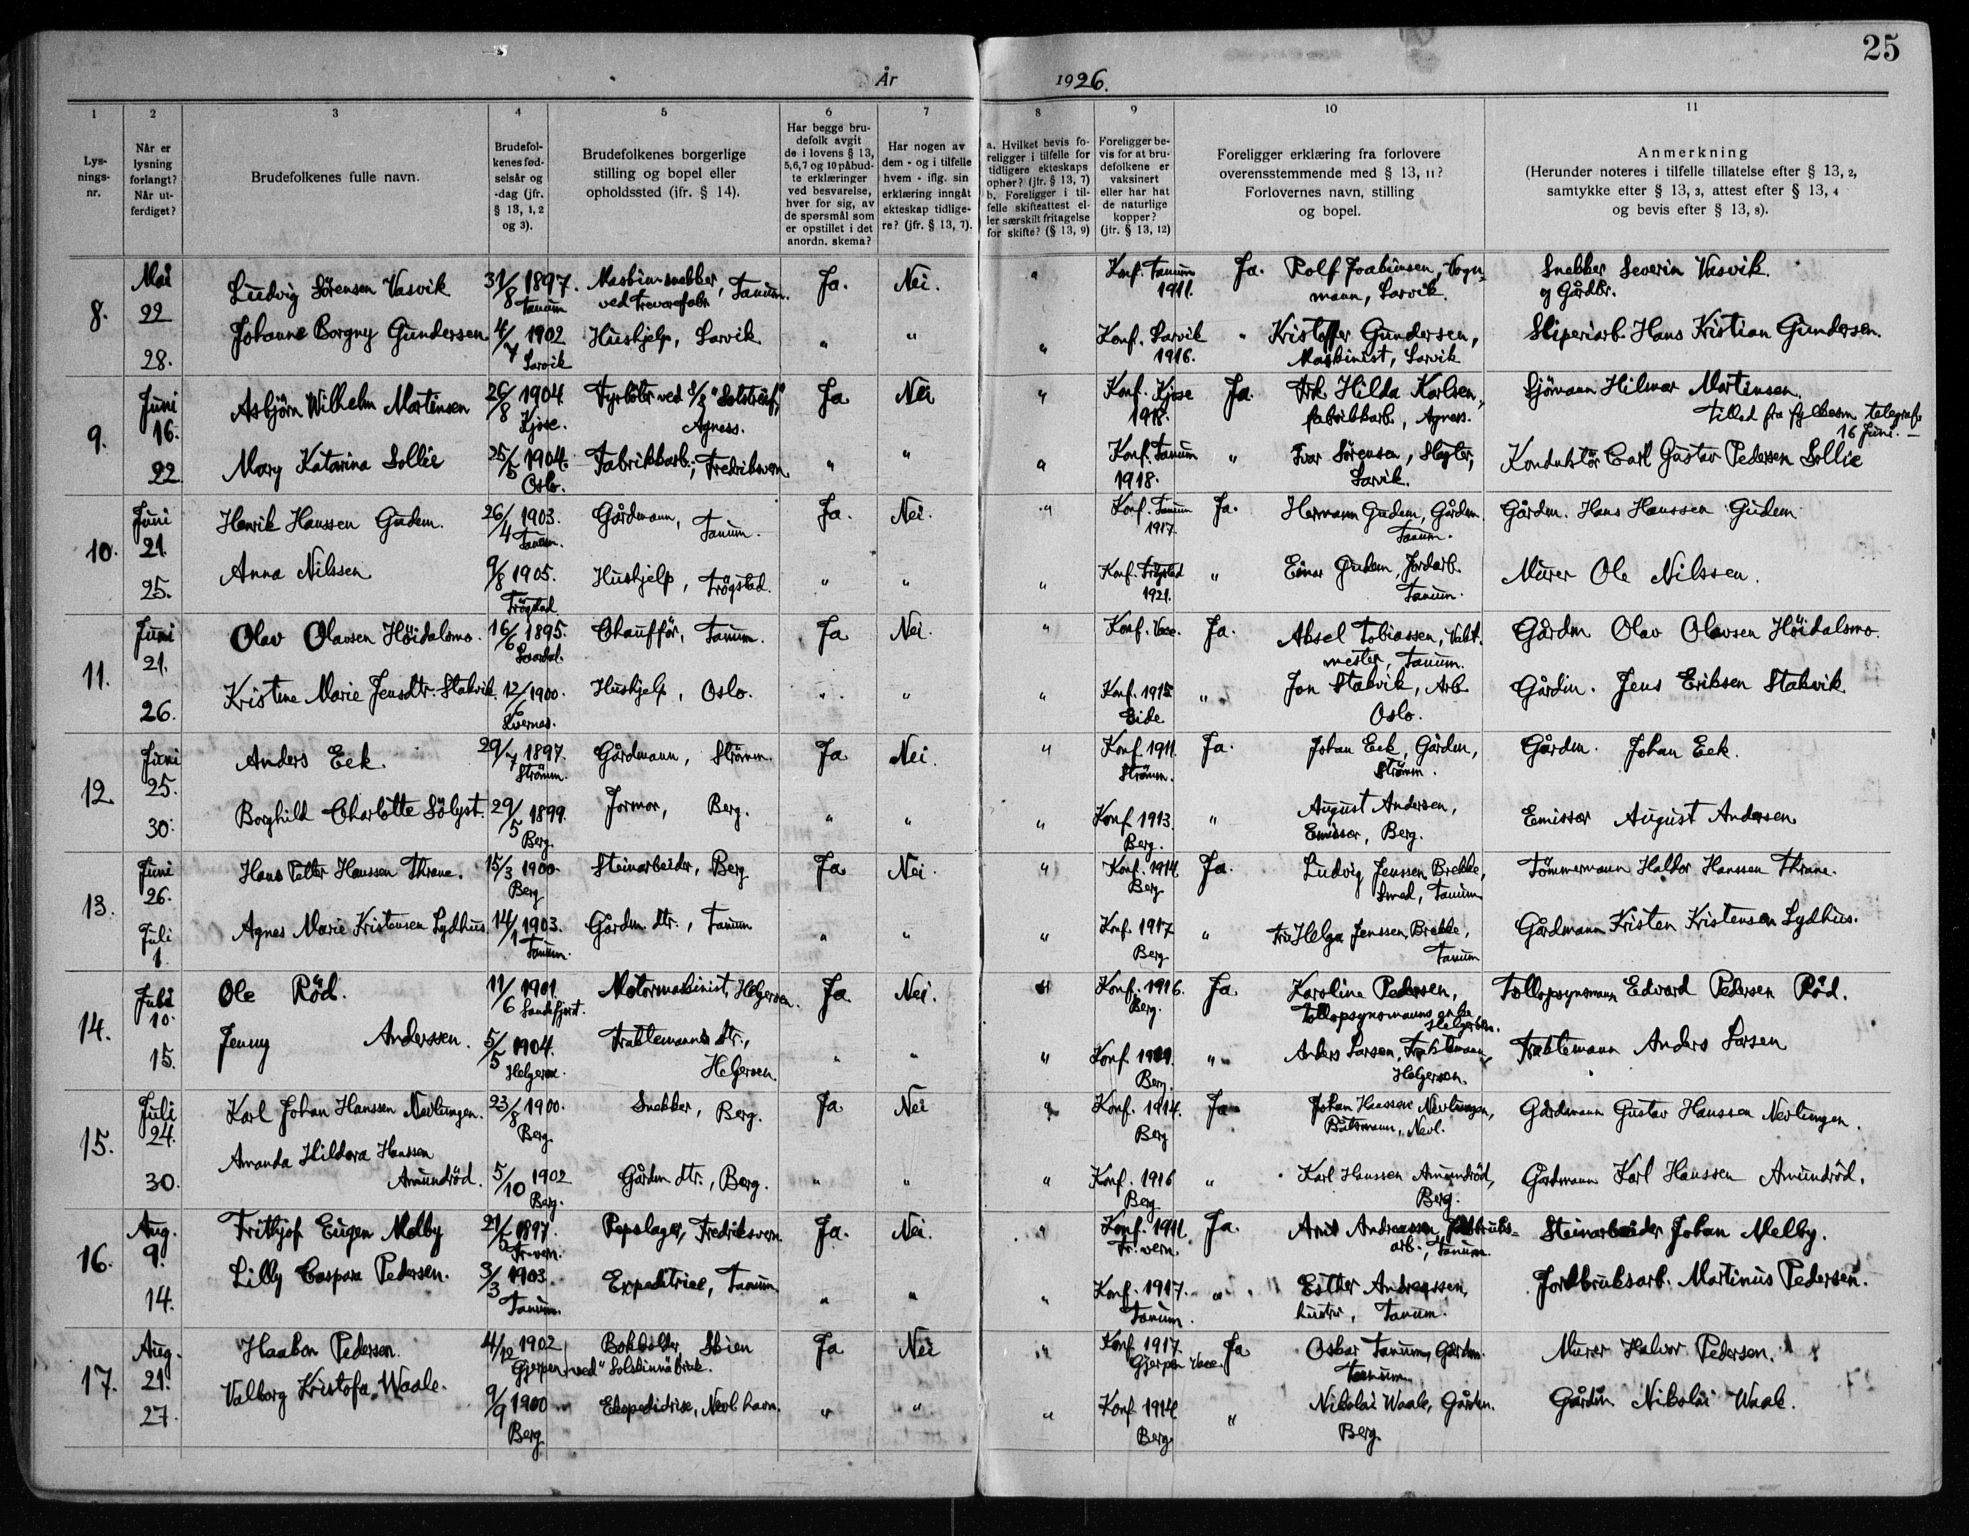 25
År 1926.
1 2 3 4 5 6 7 8 9 10 11
Lysnings-nr.
Når er lysning forlangt? Når utferdiget?
Brudefolkenes fulle navn.
Brudefolkenes fødselsår og -dag (jfr. § 13, 1, 2 og 3).
Brudefolkenes borgerlige stilling og bopel eller opholdssted (jfr. § 14).
Har begge brudefolk avgit de i lovens § 13, 5,6,7 og 10 påbudte erklæringer ved besvarelse, hver for sig, av de spørsmål som er opstillet i det anordn. skema?
Har nogen av dem - og i tilfelle hvem - iflg. sin erklæring inngåt ekteskap tidligere? (jfr. § 13, 7).
a. Hvilket bevis foreligger i tilfelle for tidligere ekteskaps ophør? (jfr. § 13, 7) b. Foreligger i tilfelle skifteattest eller særskilt fritagelse for skifte? (§ 13, 9)
Foreligger bevis for at brudefolkene er vaksinert eller har hat de naturlige kopper? (jfr. § 13, 12)
Foreligger erklæring fra forlovere overensstemmende med § 13, 11? Forlovernes navn, stilling og bopel.
Anmerkning (Herunder noteres i tilfelle tillatelse efter § 13, 2, samtykke efter § 13, 3, attest efter § 13, 4 og bevis efter § 13, 8).
8. Mai 22 28.
Ludvig Sörensen Vasvik 31/8 1897. Tanum Maskinsnekker, ved Trevarefabr. Tanum. Ja. Nei. " Konf. Tanum 1911. Ja. Rolf Joakimsen, Vognmann, Larvik. Snekker Severin Vasvik. og Gårdbr.
Johanne Borgny Gundersen 4/7 1902 Larvik Hushjelp, Larvik " " " Konf. Larvik 1916. " Kristoffer Gundersen, Maskinist, Larvik Sliperiarb. Hans Kristian Gundersen.
9. Juni 16. 22
Asbjörn Wilhelm Martinsen 26/8 1904 Kjose. Fyrböter ved S/S "Solstreif", Agness. Ja Nei " Konf. Kjose 1918. Ja. Frk Hilda Karlsen, fabrikkarb., Agness. Sjömann Hilmar Martinsen. Tillad fra fylkesm. telegraf. 16 Juni. —
Mary Katarina Sollie 25/5 1904. Oslo. Fabrikkarb., Fredriksvern " " " Konf. Tanum 1918. " Ivar Sörensen, Slagter, Larvik. Konduktör Carl Gustav Pedersen Sollie
10. Juni 21. 25.
Henrik Hanssen Gudem. 26/4 1903. Tanum. Gårdmann, Tanum. Ja. Nei. " Konf. Tanum 1917. Ja. Hermann Gudem, Gårdm. Tanum. Gårdm. Hans Hanssen Gudem
Anna Nilssen 9/8 1905. Trögstad. Hushjelp, Trögstad. " " " Konf. Trögstad 1921. " Einar Gudem, Jordarb. Tanum. Murer Ole Nilssen.
11. Juni 21. 26.
Olav Olavsen Höidalsmo. 16/6 1895. Chaufför, Tanum. Ja Nei. " Konf. Vacc. Ja. Aksel Tobiassen, Vaktmester, Tanum. Gårdm Olav Olavsen Höidalsmo.
Kristine Marie Jensdtr. Stakvik 12/6 1900. Kvernes. Hushjelp, Oslo. " " " Konf. 1915 Eide " Jon Stakvik, Arb. Oslo. Gårdm. Jens Eriksen Stakvik
12 Juni 25. 30.
Anders Eek. 29/7 1897. Strömm. Gårdmann, Strömm. Ja Nei. " Konf. 1911. Strömm. Ja. Johan Eek, Gårdm, Strömm. Gårdm. Johan Eek.
Borghild Charlotte Sölyst. 29/5 1899. Berg. Jormor, Berg. " " " Konf. 1913. Berg. " August Andersen, Emissær, Berg. Emissær August Andersen
13. Juni 26. Juli 1.
Hans Petter Hanssen Thrane. 15/3 1900. Berg Steinarbeider, Berg Ja Nei. " Konf. 1914 Berg Ja. Ludvig Jenssen Brekke, Smed, Tanum Tömmermann Haldor Hanssen Thrane.
Agnes Marie Kristensen Lydhus 14/1 1903. Tanum. Gårdm. dtr., Tanum " " " Konf. 1917 Berg " Fru Helga Jenssen, Brekke, Tanum Gårdmann Kristen Kristensen Lydhus.
14. Juli 10. 15.
Ole Röd. 11/6 1901. Sandefjord. Motormaskinist, Helgeroen. Ja Nei. " Konf. 1916. Berg. Ja Karoline Pedersen, Tollopsynsmanns enke Helgeroen. Tollopsynsmann Edvard Pedersen Röd.
Jenny Anderssen. 5/5 1904. Helgeroa. Fraktemanns dtr., Helgeroen. " " " Konf. 1919. Berg. " Anders Larsen, Fraktemann, Helgeroen. Fraktemann Anders Larsen
15. Juli 24. 30.
Karl Johan Hanssen Nevlungen. 23/8 1900. Berg. Snekker, Berg. Ja Nei " Konf. 1914. Berg Ja Johan Hanssen Nevlungen, Båtsmann, Nevl. Gårdmann Gustav Hanssen Nevlungen.
Amanda Hildora Hanssen Amundröd. 5/10 1902 Berg. Gårdm dtr., Berg. " " " Konf. 1916 Berg " Karl Hanssen Amundröd, Berg. Gårdmann Karl Hanssen Amundröd.
16. Aug. 9. 14.
Frithjof Eugen Melby 21/5 1897. Fr.vern. Repslager, Fredriksvern Ja. Nei. " Konf. 1911 Fr. vern. Ja. Arnt Andreassen, Jordbruksarb., Tanum. Steinarbeider Johan Melby.
Lilly Caspara Pedersen. 3/3 1903. Tanum. Expeditrice, Tanum " " " Konf. 1917. Tanum. " Esther Andreassen, hustru, Tanum. Jordbruksarb. Martinus Pedersen.
17. Aug. 21. 27.
Haakon Pedersen. 4/12 1902 Gjerpen Bokholder, Skien ved "Solskinnsbruk. Ja Nei " Konf 1917 Gjerpen vacc. Ja Oskar Tanum, Gårdm. Tanum. Murer Halvor Pedersen.
Valborg Kristofa Waale. 9/9 1900 Berg Ekspeditrise, Nevl. havn. " " " Konf. 1914 Berg " Nikolai Waale, Gårdm. Berg. Gårdm Nikolai Waale.